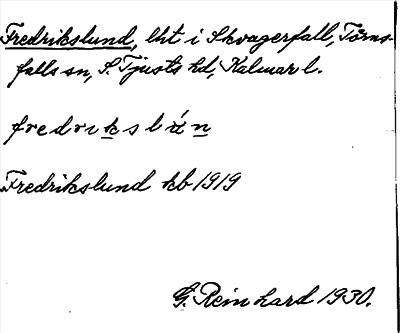 Fredrikslund, lht i Skvagerfall, Törns-
falls sn, S. Tjusts hd, Kalmar l.
Fredrikslund kb 1919
G. Reinhard 1930.